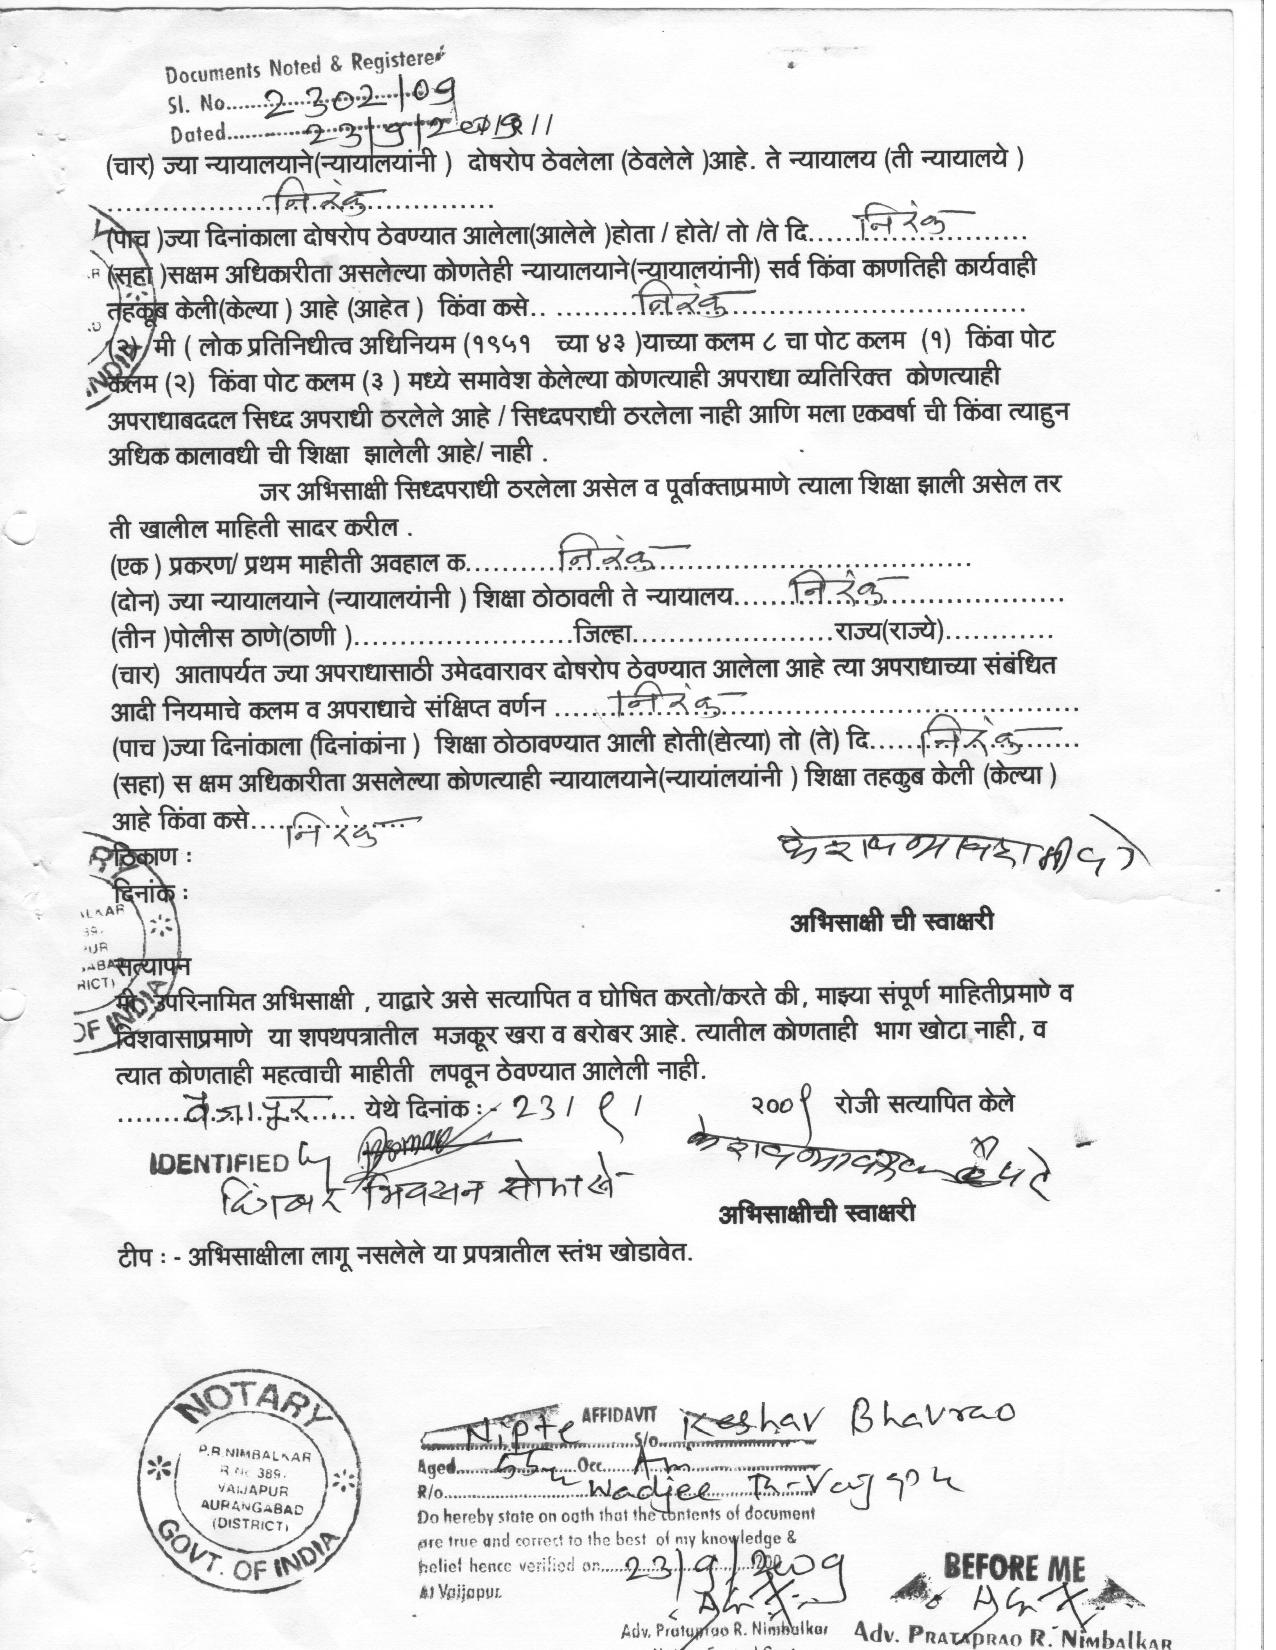 Documents Noted & Registered
Sl. No.......2302/09
Dated........23/9/2009
(चार) ज्या न्यायालयाने(न्यायालयांनी ) दोषरोप ठेवलेला (ठेवलेले )आहे. ते न्यायालय (ती न्यायालये )
....................निरंक....................
(पाच )ज्या दिनांकाला दोषरोप ठेवण्यात आलेला(आलेले )होता / होते/ तो /ते दि......निरंक..........
(सहा )सक्षम अधिकारीता असलेल्या कोणतेही न्यायालयाने(न्यायालयांनी) सर्व किंवा काणतिही कार्यवाही
तहकूब केली(केल्या ) आहे (आहेत ) किंवा कसे.. ...........निरंक..............................
(२) मी ( लोक प्रतिनिधीत्व अधिनियम (१९५१ च्या ४३ )याच्या कलम ८ चा पोट कलम (१) किंवा पोट
कलम (२) किंवा पोट कलम (३ ) मध्ये समावेश केलेल्या कोणत्याही अपराधा व्यतिरिक्त कोणत्याही
अपराधाबददल सिध्द अपराधी ठरलेले आहे / सिध्दपराधी ठरलेला नाही आणि मला एकवर्षा ची किंवा त्याहुन
अधिक कालावधी ची शिक्षा झालेली आहे/ नाही .
जर अभिसाक्षी सिध्दपराधी ठरलेला असेल व पूर्वाक्ताप्रमाणे त्याला शिक्षा झाली असेल तर
ती खालील माहिती सादर करील .
(एक ) प्रकरण/ प्रथम माहीती अवहाल क..........निरंक..............................
(दोन) ज्या न्यायालयाने (न्यायालयांनी ) शिक्षा ठोठावली ते न्यायालय.......निरंक....................
(तीन )पोलीस ठाणे(ठाणी )........................जिल्हा......................राज्य(राज्ये)............
(चार) आतापर्यत ज्या अपराधासाठी उमेदवारावर दोषरोप ठेवण्यात आलेला आहे त्या अपराधाच्या संबंधित
आदी नियमाचे कलम व अपराधाचे संक्षिप्त वर्णन .......निरंक......................................
(पाच )ज्या दिनांकाला (दिनांकांना ) शिक्षा ठोठावण्यात आली होती(होत्या) तो (ते) दि......निरंक.......
(सहा) स क्षम अधिकारीता असलेल्या कोणत्याही न्यायालयाने(न्यायांलयांनी ) शिक्षा तहकुब केली (केल्या )
आहे किंवा कसे.................निरंक
ठिकाण :
दिनांक :
अभिसाक्षी ची स्वाक्षरी
सत्यापन
मी उपरिनामित अभिसाक्षी , याद्वारे असे सत्यापित व घोषित करतो/करते की, माझ्या संपूर्ण माहितीप्रमाणे व
विशवासाप्रमाणे या शपथपत्रातील मजकूर खरा व बरोबर आहे. त्यातील कोणताही भाग खोटा नाही, व
त्यात कोणताही महत्वाची माहीती लपवून ठेवण्यात आलेली नाही.
........वैजापूर...... येथे दिनांक : - 23/ ९/ २००९ रोजी सत्यापित केले
IDENTIFIED by
अभिसाक्षीची स्वाक्षरी
टीप : - अभिसाक्षीला लागू नसलेले या प्रपत्रातील स्तंभ खोडावेत.
NOTARY
P.R.NIMBALKAR
R.No. 389.
VAIJAPUR
AURANGABAD
(DISTRICT)
GOVT. OF INDIA
AFFIDAVIT
Nipte S/o Keshav Bhavrao
Aged......55......Occ......
R/o.......Wadjee
Do hereby state on oath that the contents of document
are true and correct to the best of my knowledge &
belief hence verified on....23/9/2009
At Vaijapur.
Adv. Prataprao R. Nimbalkar
BEFORE ME
Adv. PRATAPRAO R. NIMBALKAR